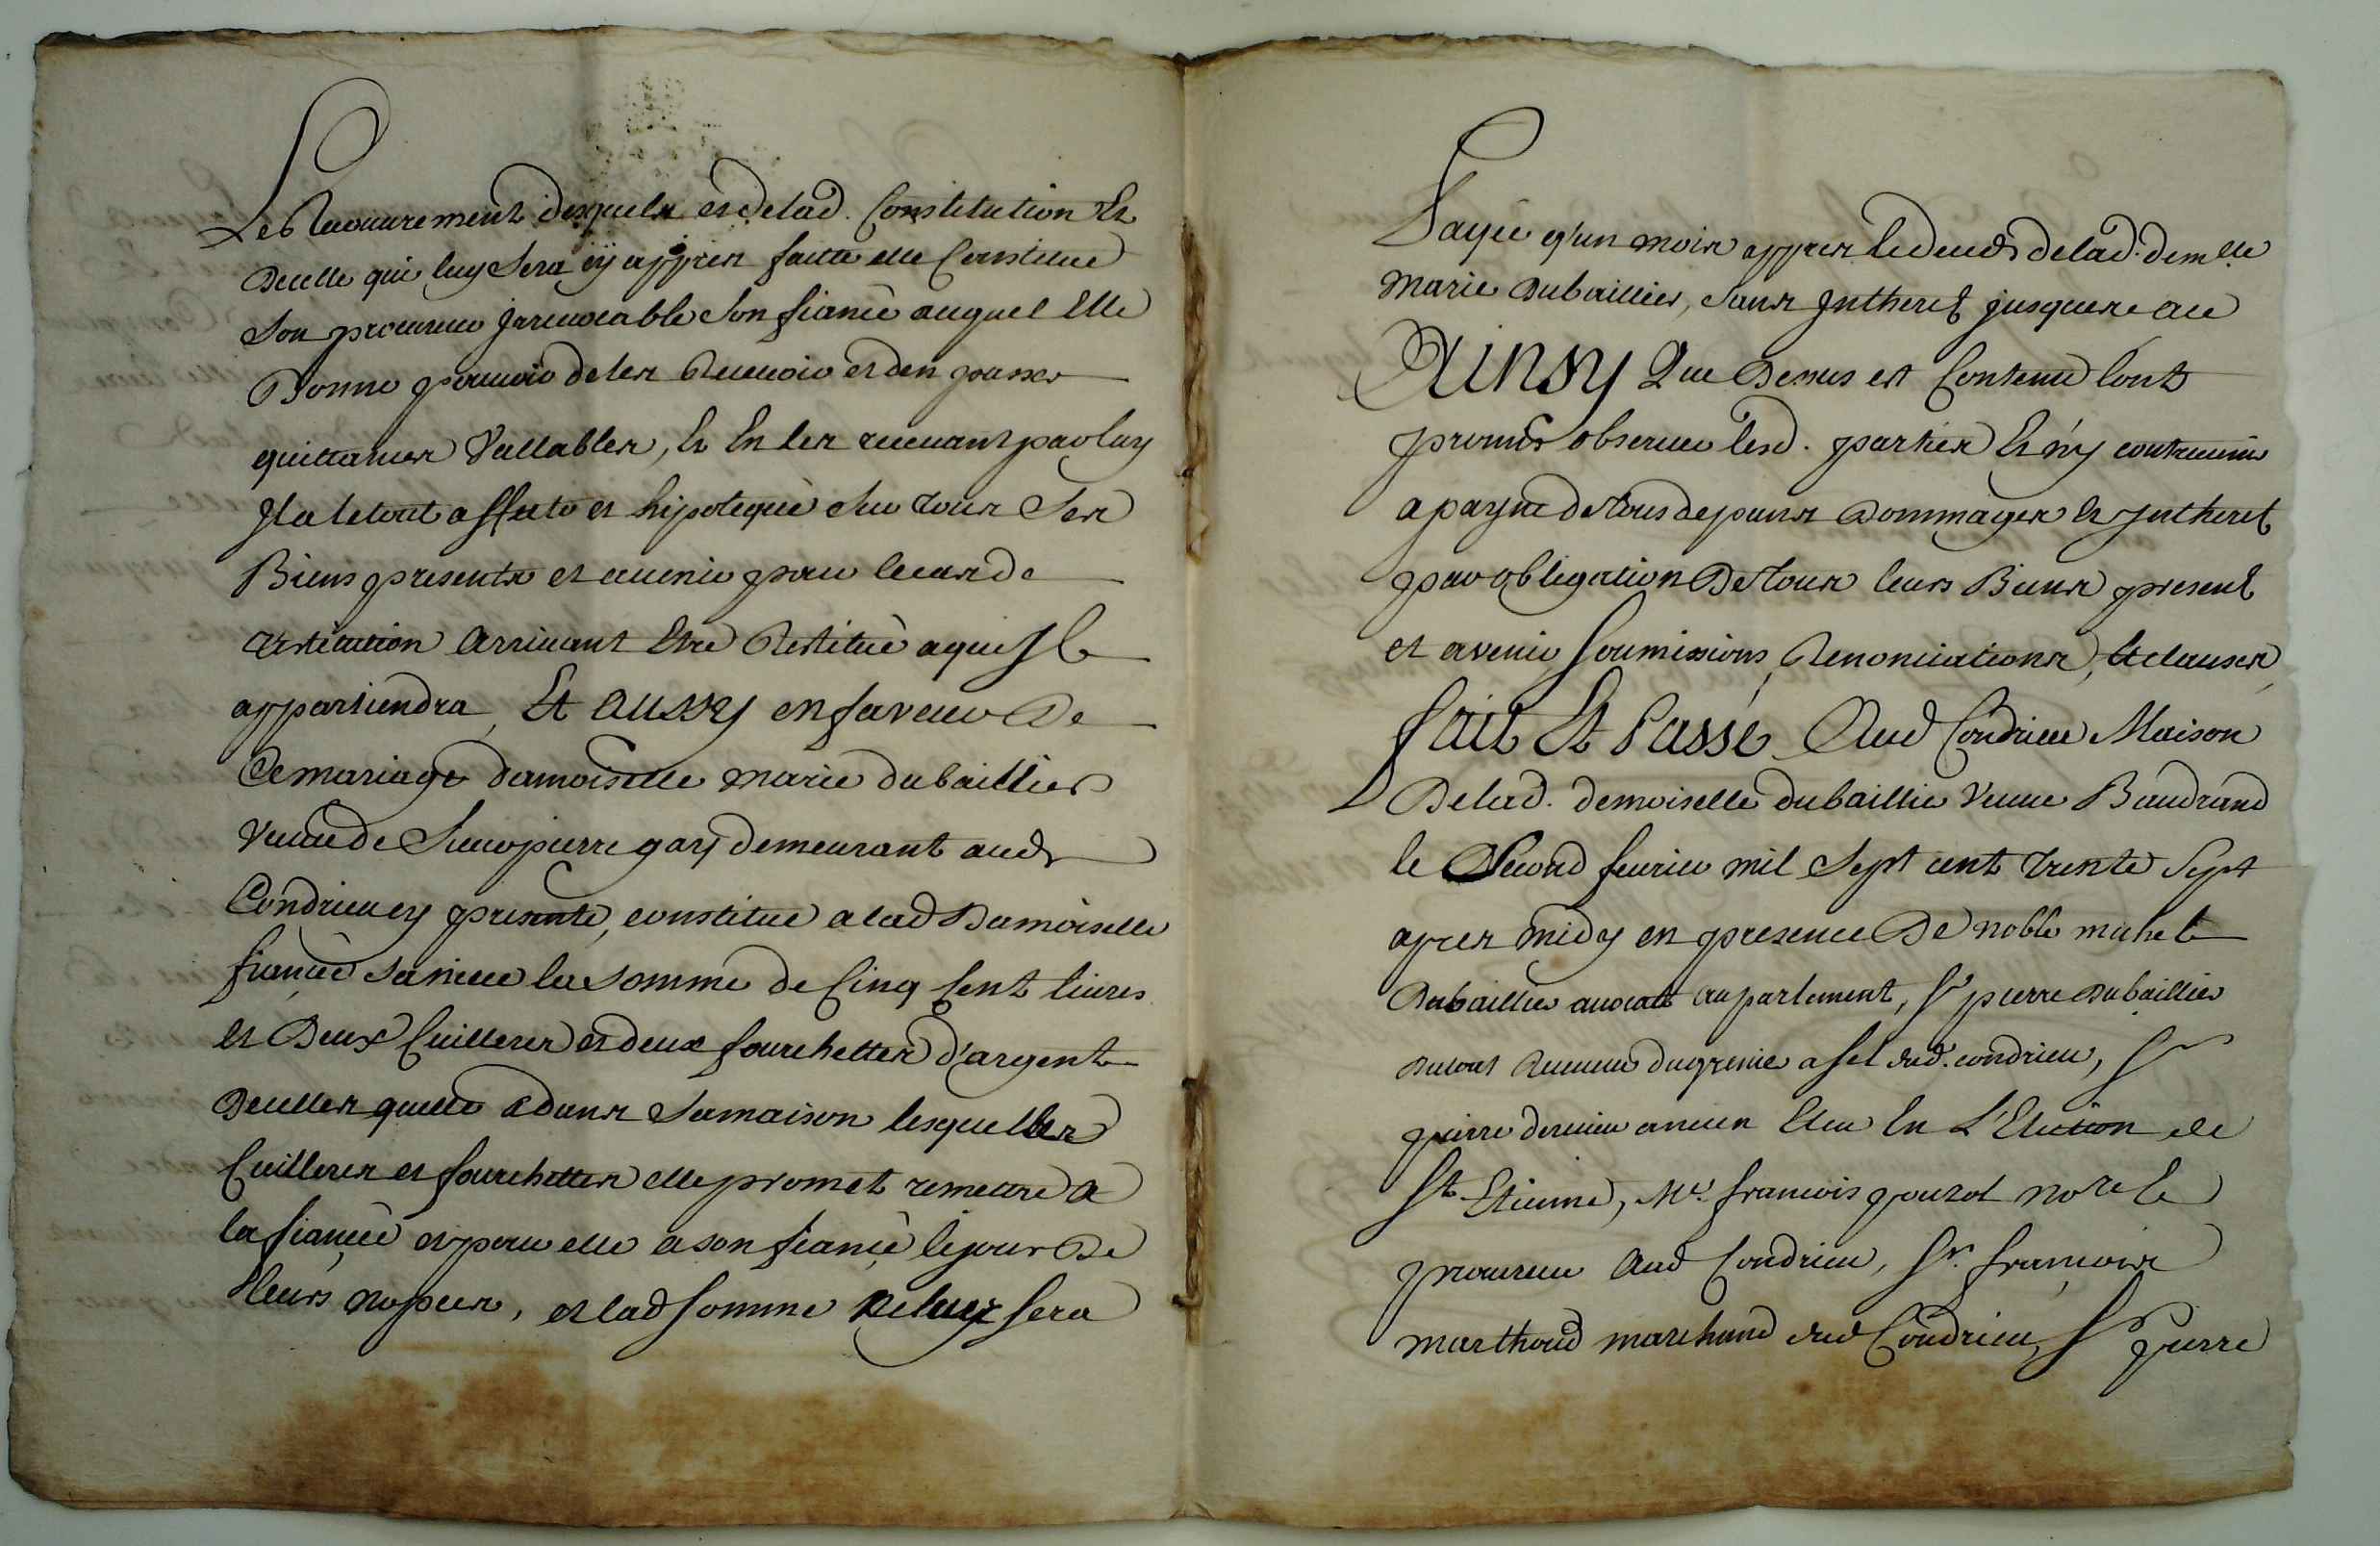 Les Recouurement desquels et delad. Constitution Et
Decelle qui luy Sera cy appres faitte elle Constitue
Son procureur Jrreuocable Son fiancè auquel Elle
Donne pouuoir deles Receuoir et den passer
quittances Vallables, Et En les receuant par luy
Jl a letout affecté et hipotequè sur tous Ses
Biens presents et auenir pour lecas de
restitution Arriuant Etre Restituè aqui Jl
appartiendra, Et Aussy en faveur De
Ce mariage damoiselle marie dubaillier
Veuue de Sieur pierre gary demeurant aud
Condrieu cy presente, constitue a lad Damoiselle
fiancèe sa niece la somme de Cinq Cent liures
Et Deux Cuilleres et deux fourchettes d'argent
De celles quelle a dans Sa maison lesquelles
Cuilleres et fourchettes elle promet remettre a
la fiancèe et pour elle a son fiancè le jour De
Leurs nopces, et lad Somme ne luy sera
Payèe q'un mois appres le deces delad. demlle
Marie Dubaillier, sans Jntherest jusques ace
Ainsy Que Dessus est Contenu l'ont
promis obseruer lesd. parties Et n'y contreuenir
a payne de tous depans Dommages et Jntherest
par obligation De tous leurs Biens present
et avenir Soumissions, Renonciations, et clauses,
fait Et Passé Aud Condrieu Maison
Delad. demoiselle dubaillier Veuue Baudrand
le Second feurier mil Sept cent trente Sept
apres midy en presence De noble michel
Dubaillier auocat au parlement, Sr pierre Dubaillier
Receueur du grenier a sel dud. condrieu, Sr
pierre ancien Eleu En L'Election de
St. Etienne, Me. francois pouzol nore le
procureur Aud Condrieu, Sr. francois
marthoud marchand dud Condrieu, Sr pierre